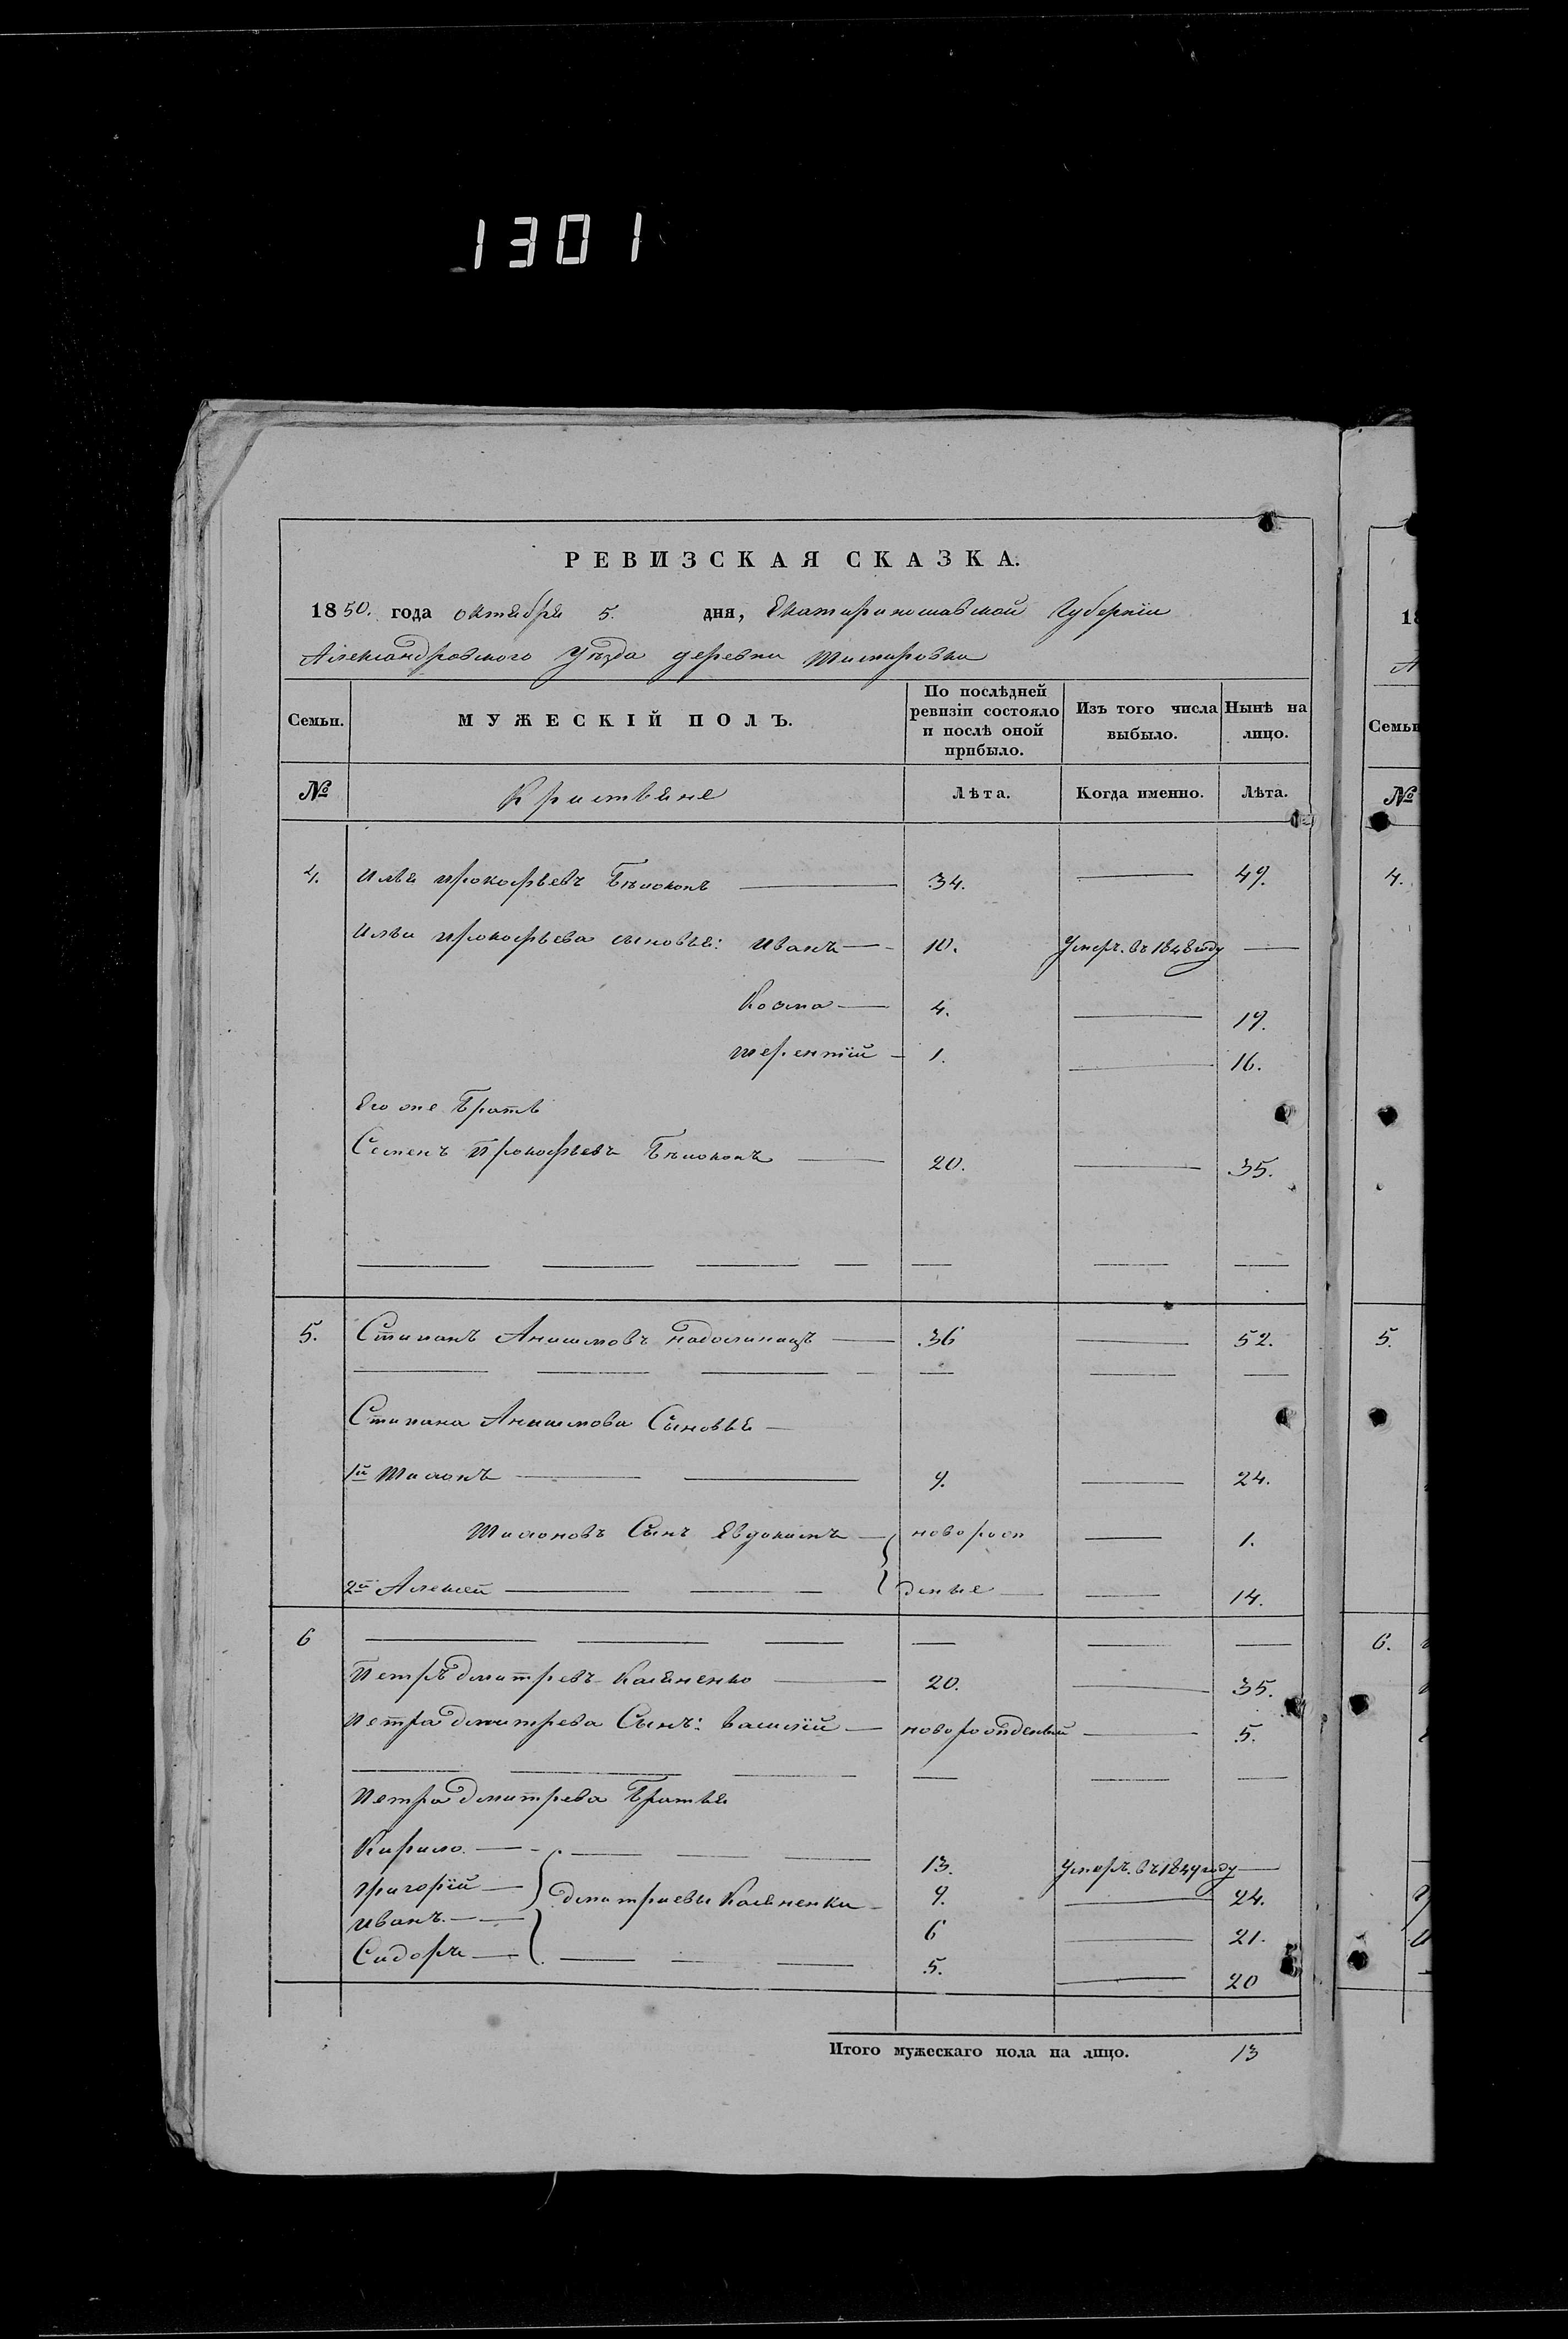 1301
РЕВИЗСКАЯ СКАЗКА.
1850. года октября 5. дня, Екатеринославской Губерніи
Александровского Уѣзда деревни
Семьи.
МУЖЕСКІЙ ПОЛЪ.
По послѣдней ревизіи состояло и послѣ оной прибыло.
Изъ того числа выбыло.
Нынѣ на лицо.
№
Кристьяне
Лѣта.
Когда именно.
Лѣта.
4. Илья Прокофьевъ Бѣлоконь 34. 49.
Ильи Прокофьева сыновья: Иванъ 10. Умеръ. въ 1848 году
Козма 4. 19.
Терентій 1. 16.
Его же Братъ
Семенъ Прокофьевъ Бѣлоконь 20. 35.
5. Степанъ Анисимовъ 36 52.
Степана Анисимова Сыновья
1й 9. 24.
Сынъ Евдокимъ новорож 1.
2й Алексей деные 14.
6
Петръ Дмитревъ Касяненко 20. 35.
Петра Дмитрева Сынъ: Василій новорожденый 5.
Петра Дмитрева Братья
Кирило 13. Умеръ. въ 1849 году
Григорій 9. 24.
Дмитриевы Касяненки
Иванъ 6 21.
Сидоръ 5. 20
Итого мужескаго пола на лицо. 13
18
Семьи
№
4.
5.
6.